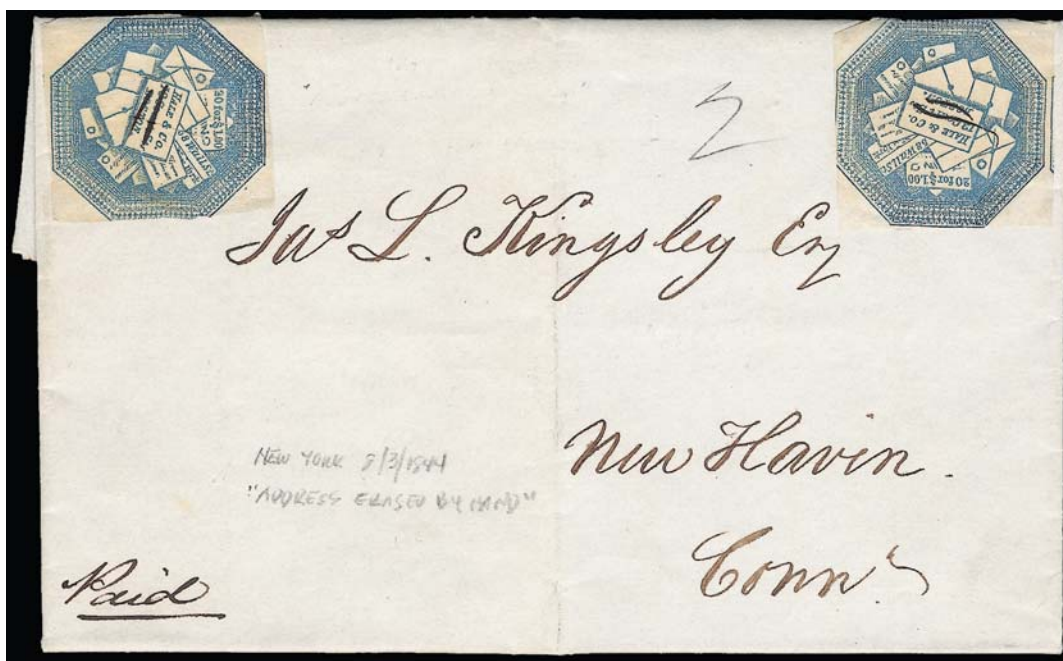 HALE & CO.
20 for $1.00
HALE & CO.
13 Court St.
58 Wall St.
20 for $1.00
2
Jas L. Kingsley Esq
New Haven.
Conn.
NEW YORK 8/3/1844
"ADDRESS ERASED BY HAND"
Paid